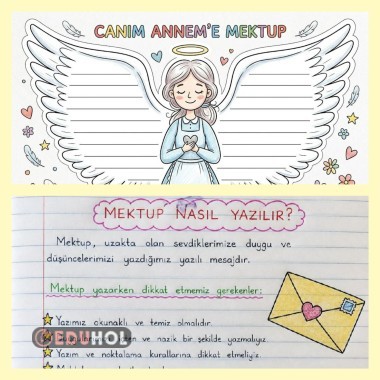 CANIM ANNEM'E MEKTUP
MEKTUP NASIL YAZILIR?
Mektup, uzakta olan sevdiklerimize duygu ve
düşüncelerimizi yazdığımız yazılı mesajdır.
Mektup yazarken dikkat etmemiz gerekenler:
Yazımız okunaklı ve temiz olmalıdır.
©EDUHOL
ve nazik bir şekilde yazmalıyız.
Yazım ve noktalama kurallarına dikkat etmeliyiz.